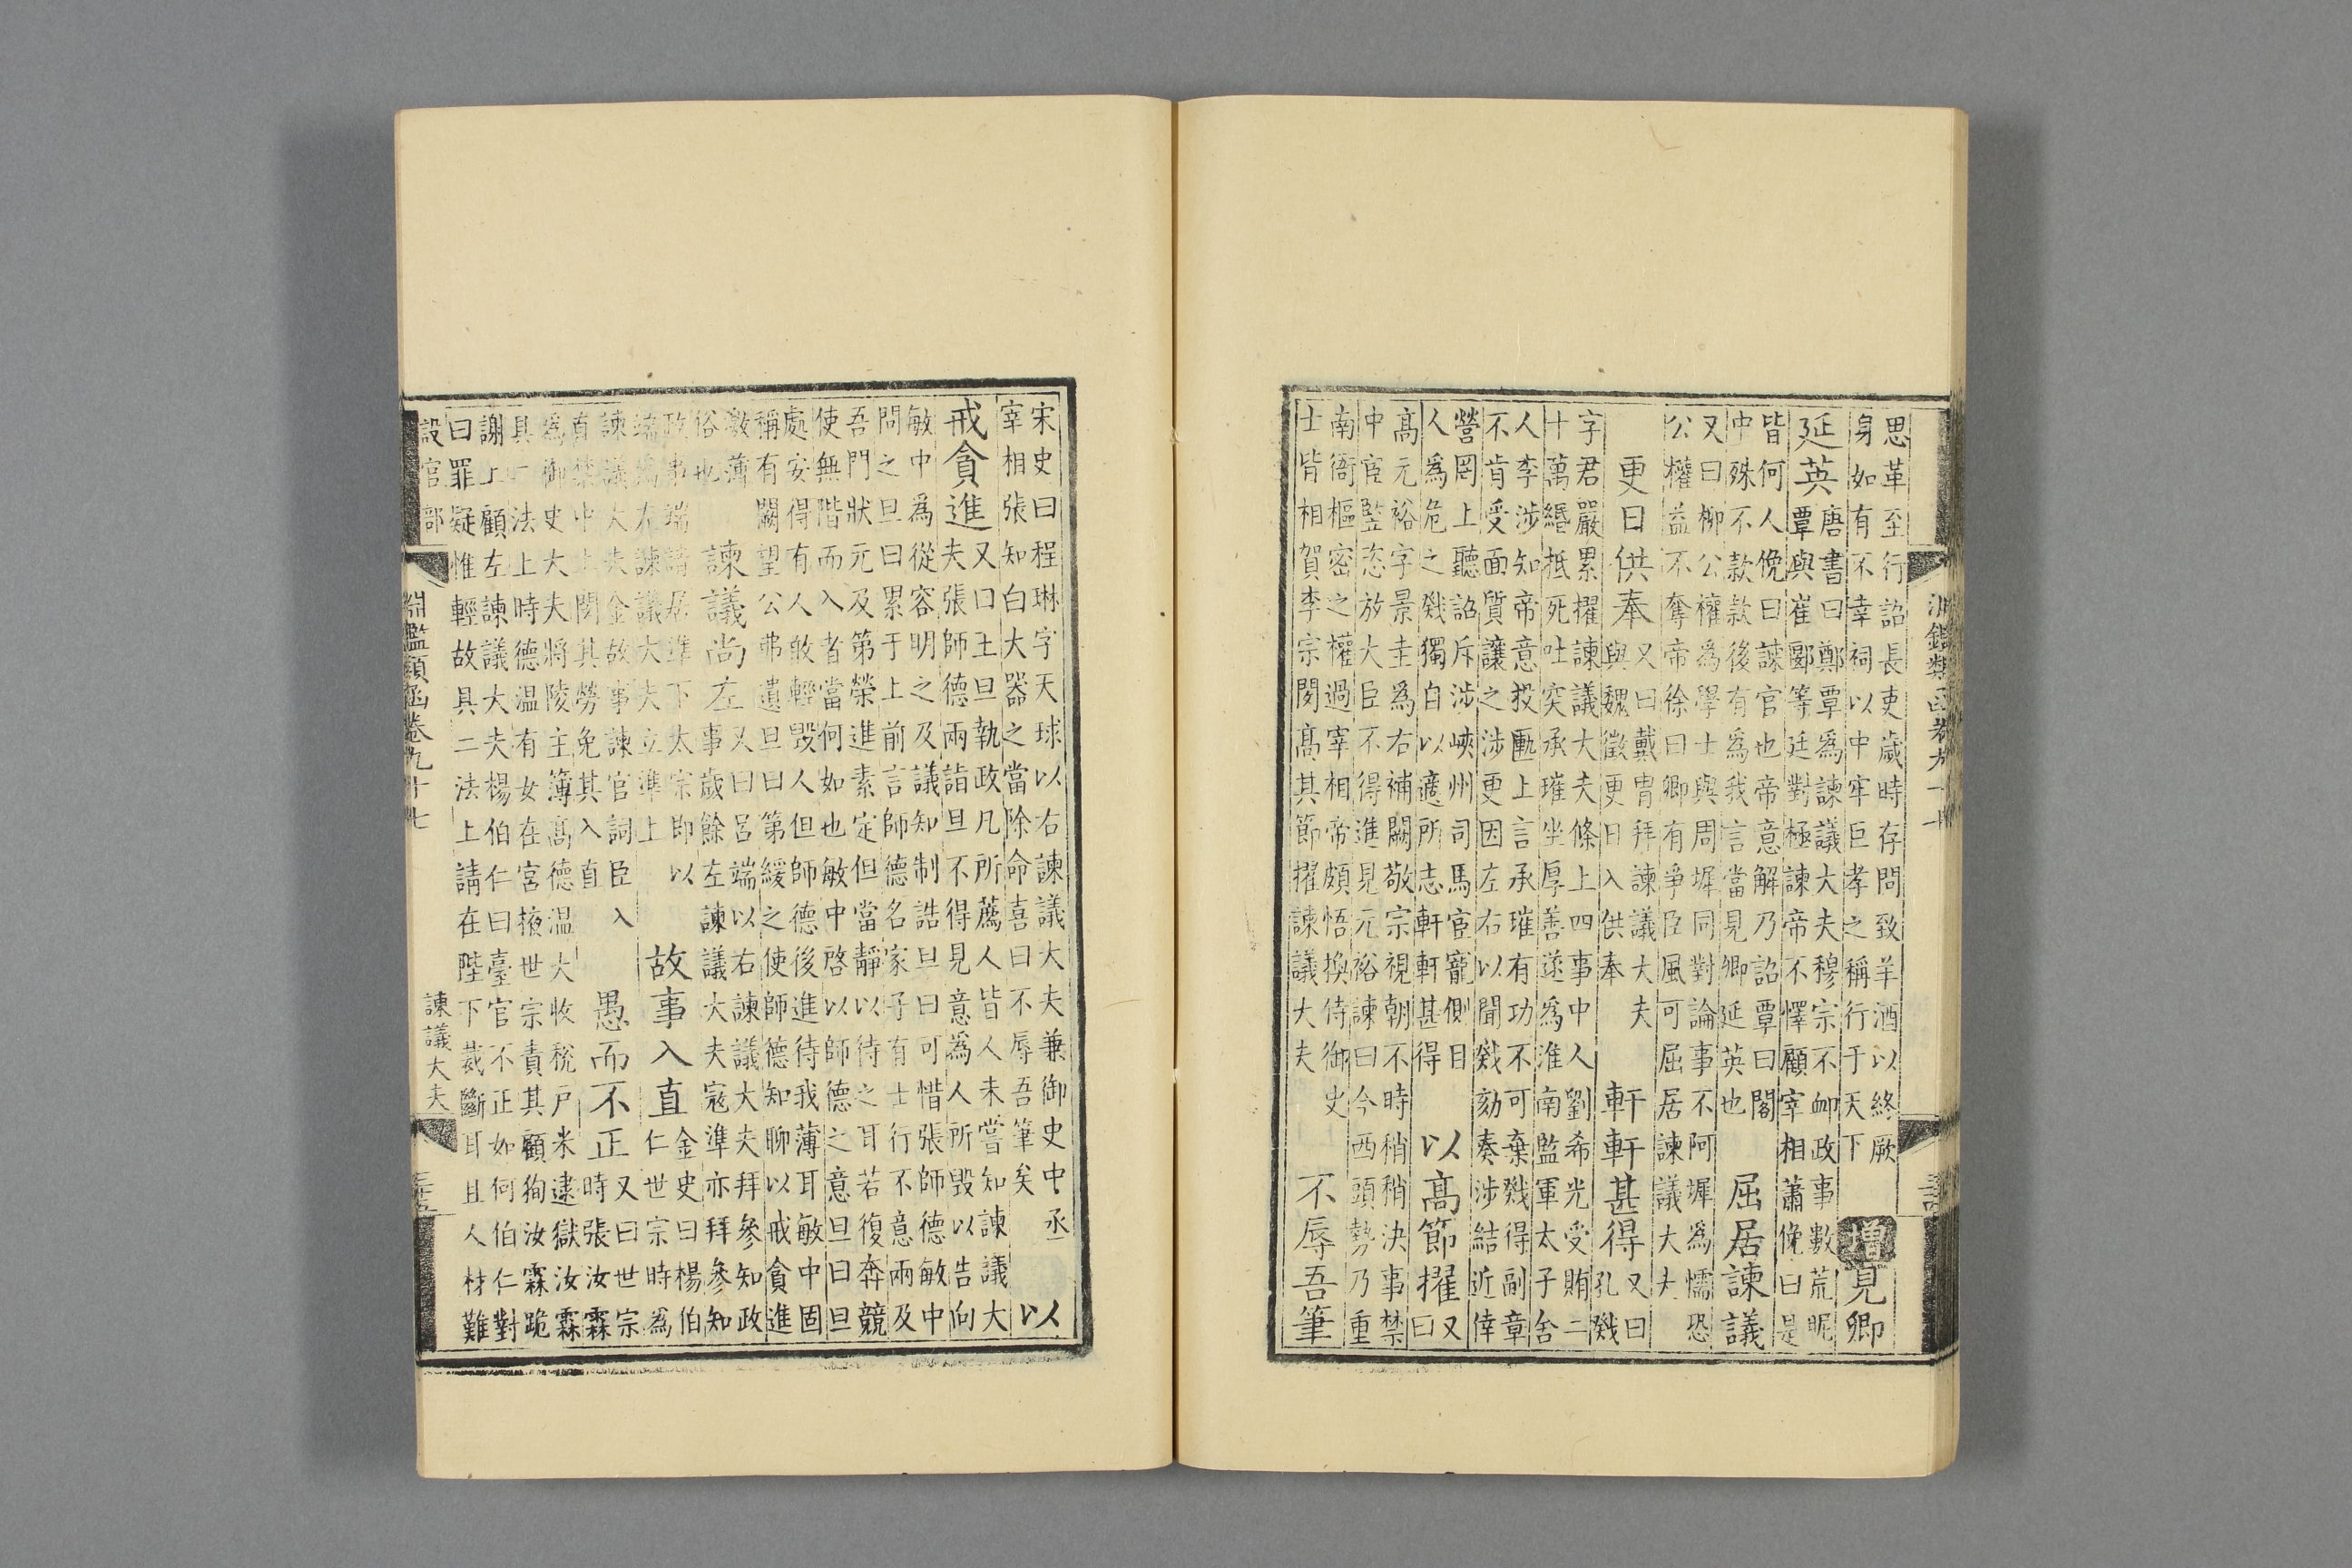 淵鑑類函卷九十七
思革至行詔長吏歲時存問致羊酒以終厥
身如有不幸祠以中牢巨孝之稱行于天下
增見卿
延英
唐書曰鄭覃為諫議大夫穆宗不衈政事數荒昵
覃與崔郾等廷對極諫帝不懌顧宰相蕭俛曰是
皆何人俛曰諫官也帝意解乃詔覃曰閤
中殊不款款後有為我言當見卿延英也
屈居諫議
又曰柳公權為學士與周墀同對論事不阿墀為懦恐
公權益不奪帝徐曰卿有爭臣風可屈居諫議大夫
更日供奉
又曰戴冑拜諫議大夫
與魏徵更日入供奉
軒軒甚得
又曰
孔戣
字君嚴累擢諫議大夫條上四事中人劉希光受賄二
十萬緡抵死吐突承璀坐厚善逐為淮南監軍太子舍
人李涉知帝意投匭上言承璀有功不可棄戣得副章
不肯受面質讓之涉更因左右以聞戣劾奏涉結近倖
營罔上聽詔斥涉峽州司馬宦寵側目
人為危之戣獨自以適所志軒軒甚得
以高節擢
又
曰
高元裕字景圭為右補闕敬宗視朝不時稍稍決事禁
中宦豎恣放大臣不得進見元裕諫曰今西頭勢乃重
南衙樞密之權過宰相帝頗悟換侍御史
士皆相賀李宗閔高其節擢諫議大夫
不辱吾筆
宋史曰程琳字天球以右諫議大夫兼御史中丞
宰相張知白大器之當除命喜曰不辱吾筆矣
以
戒貪進
又曰王旦執政凡所薦人皆人未嘗知諫議大
夫張師德兩詣旦不得見意為人所毀以告向
敏中為從容明之及議知制誥旦曰可惜張師德敏中
問之旦曰累于上前言師德名家子有士行不意兩及
吾門狀元及第榮進素定但當靜以待之耳若復奔競
使無階而入者當何如也敏中啓以師德之意旦曰旦
處安得有人敢輕毀人但師德後進待我薄耳敏中固
稱有闕望公弗遺旦曰第緩之使師德知聊以戒貪進
激薄
俗也
諫議尚左
又曰呂端以右諫議大夫拜參知政
事歲餘左諫議大夫寇準亦拜參知
政事端請居準下太宗即以
端為左諫議大夫立準上
故事入直
金史曰楊伯
仁世宗時為
諫議大夫金故事諫官詞臣入
直禁中上閔其勞免其入直
愚而不正
又曰世宗
時張汝霖
為御史大夫將陵主簿高德溫大收稅戶米逮獄汝霖
具二法上時德溫有女在宮掖世宗責其顧徇汝霖跪
謝上顧左諫議大夫楊伯仁曰臺官不正如何伯仁對
曰罪疑惟輕故具二法上請在陛下裁斷耳且人材難
設官部
淵鑑類函卷九十七
諫議大夫